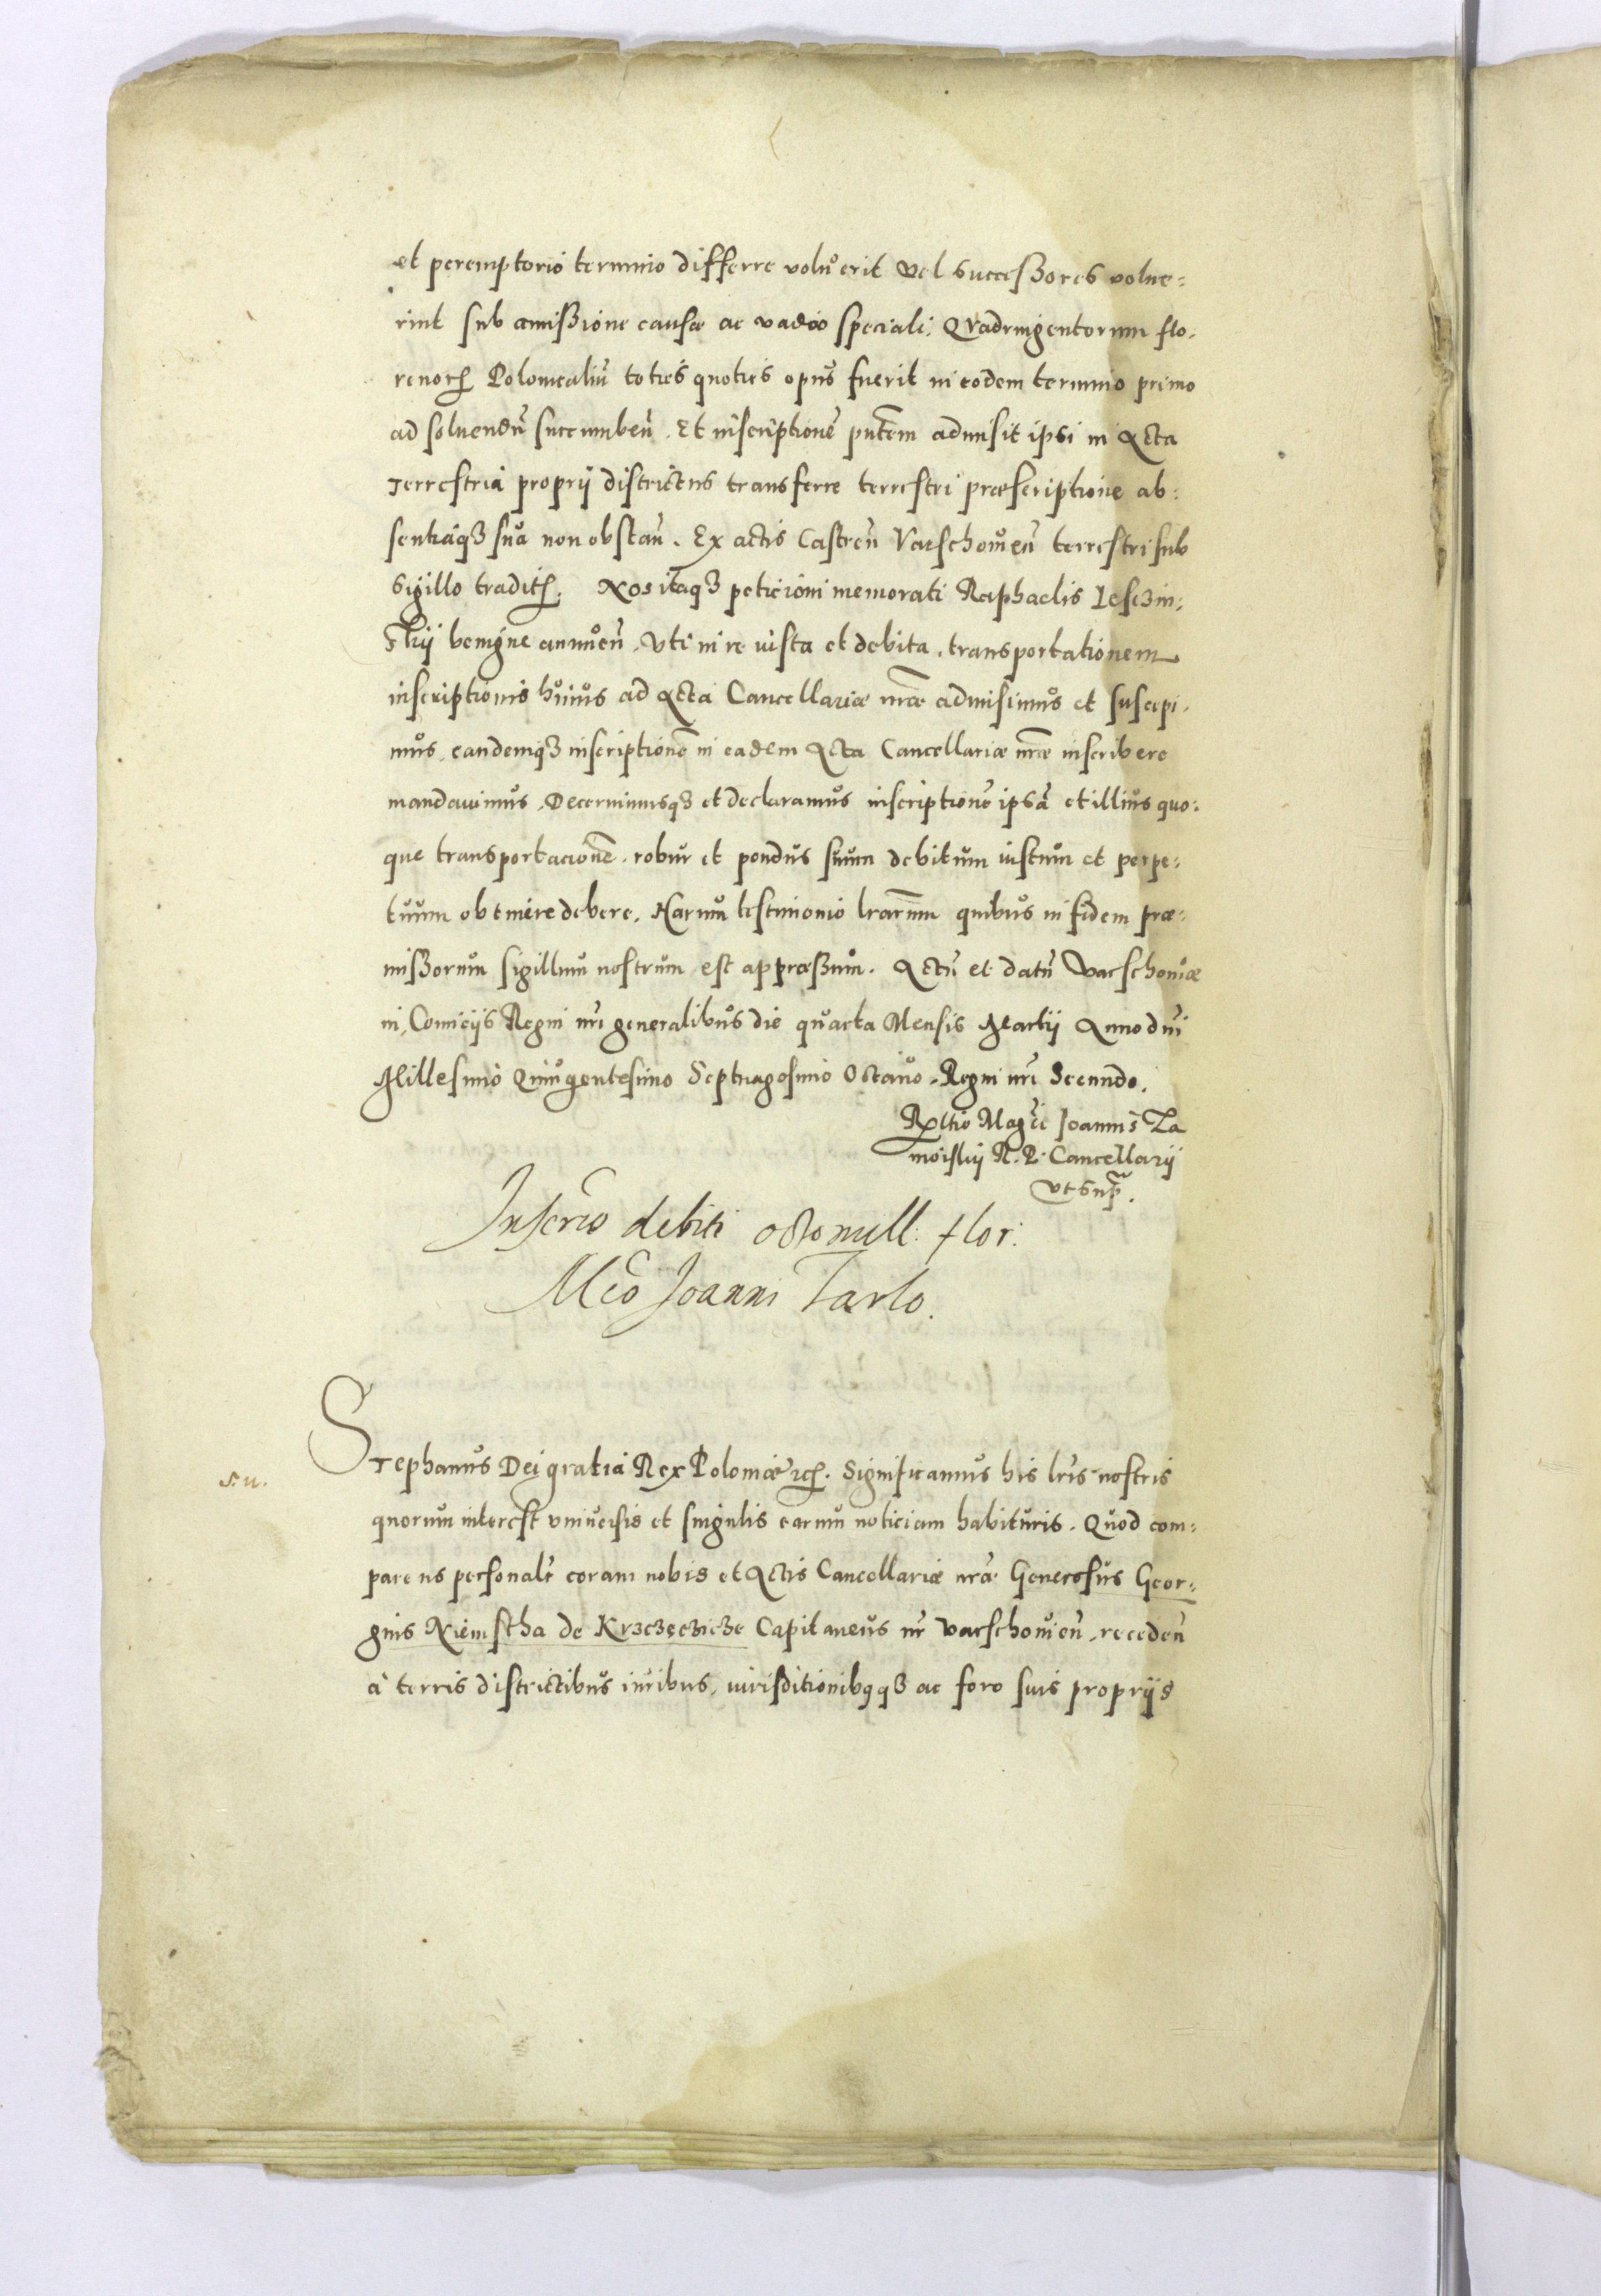 et peremptorio termino differre voluerit vel successores volue=
rint sub amissione causæ ac vadio speciali Quadringentorum flo-
renorꝝ Polonicaliũ toties quoties opus fuerit in eodem termino primo
ad soluendũ succumbeñ. Et inscriptionẽ pntem admisit ipsi in Acta
Terrestria proprij districtus transferre terrestri præscriptione ab=
sentiaqꝫ sua non obstañ. Ex actis Castreñ Varschouieñ terrestri sub
sigillo traditꝭ. Nos itaqꝫ peticioni memorati Raphaelis Lesczin=
skij benigne annueñ. Vti in re iusta et debita, transportationem
inscriptionis huius ad Acta Cancellariæ nræ admisimus et suscepi-
mus, eandemqꝫ inscriptionẽ in eadem Acta Cancellariæ nræ inscribere
mandauimus. Decernimusqꝫ et declaramus inscriptionẽ ipsã et illius quo=
que transportacionẽ, robur et pondus suum debitum iustum et perpe=
tuum obtinere debere. Harum testimonio lrarum quibus in fidem præ=
missorum sigillum nostrum est appressum. Actũ et datũ Varschouiæ
in Comicijs Regni nri generalibus die quarta Mensis Martij Anno dni
Millesimo Quingentesimo Septuagesimo Octauo. Regni nri Secundo.
Rltio Magci Joannis Za
moiskij R. P. Cancellarij
vt supra.
Inscrio debiti octo mill: flor:
Mco Joanni Tarlo.
Stephanus Dei gratia Rex Poloniæ etc. Significamus his lris nostris
s. n.
quorum interest vniuersis et singulis earum noticiam habituris. Quod com=
parens personalr coram nobis et Actis Cancellariæ nræ Generosus Geor=
gius Niemstha de Krzczęczicze Capitaneus nr Varschouieñ, recedeñ
à terris districtibus iuribus, iurisditionibqꝫ ac foro suis proprijs